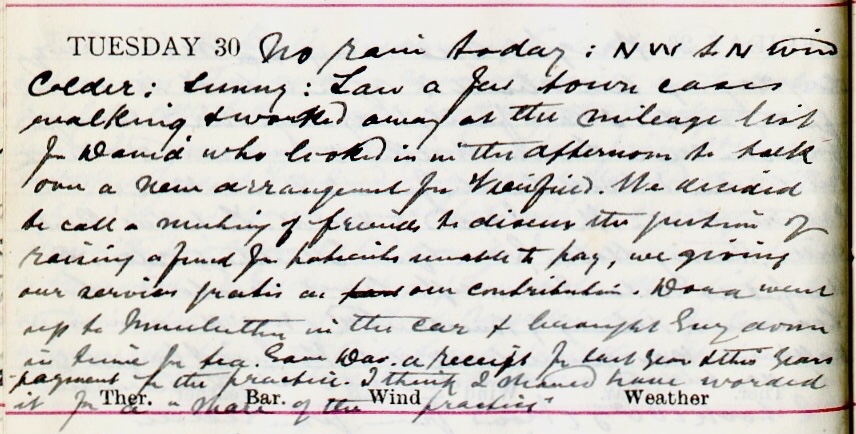 TUESDAY 30 No rain today: NW to N wind
Colder: Sunny: Saw a few town cases
walking & worked away at the mileage list
for David who looked in in the afternoon to talk
over a new arrangement for We decided
to call a meeting of friends to discuss the question of
raising a fund for patients unable to pay, we giving
our services gratis as our contribution. went
up to in the car & brought Guy down
in time for tea. Gave Dav. a receipt for last year & this years
payment for the practice. I think I should have worded
it for a "share of the practice"
Ther. Bar. Wind Weather